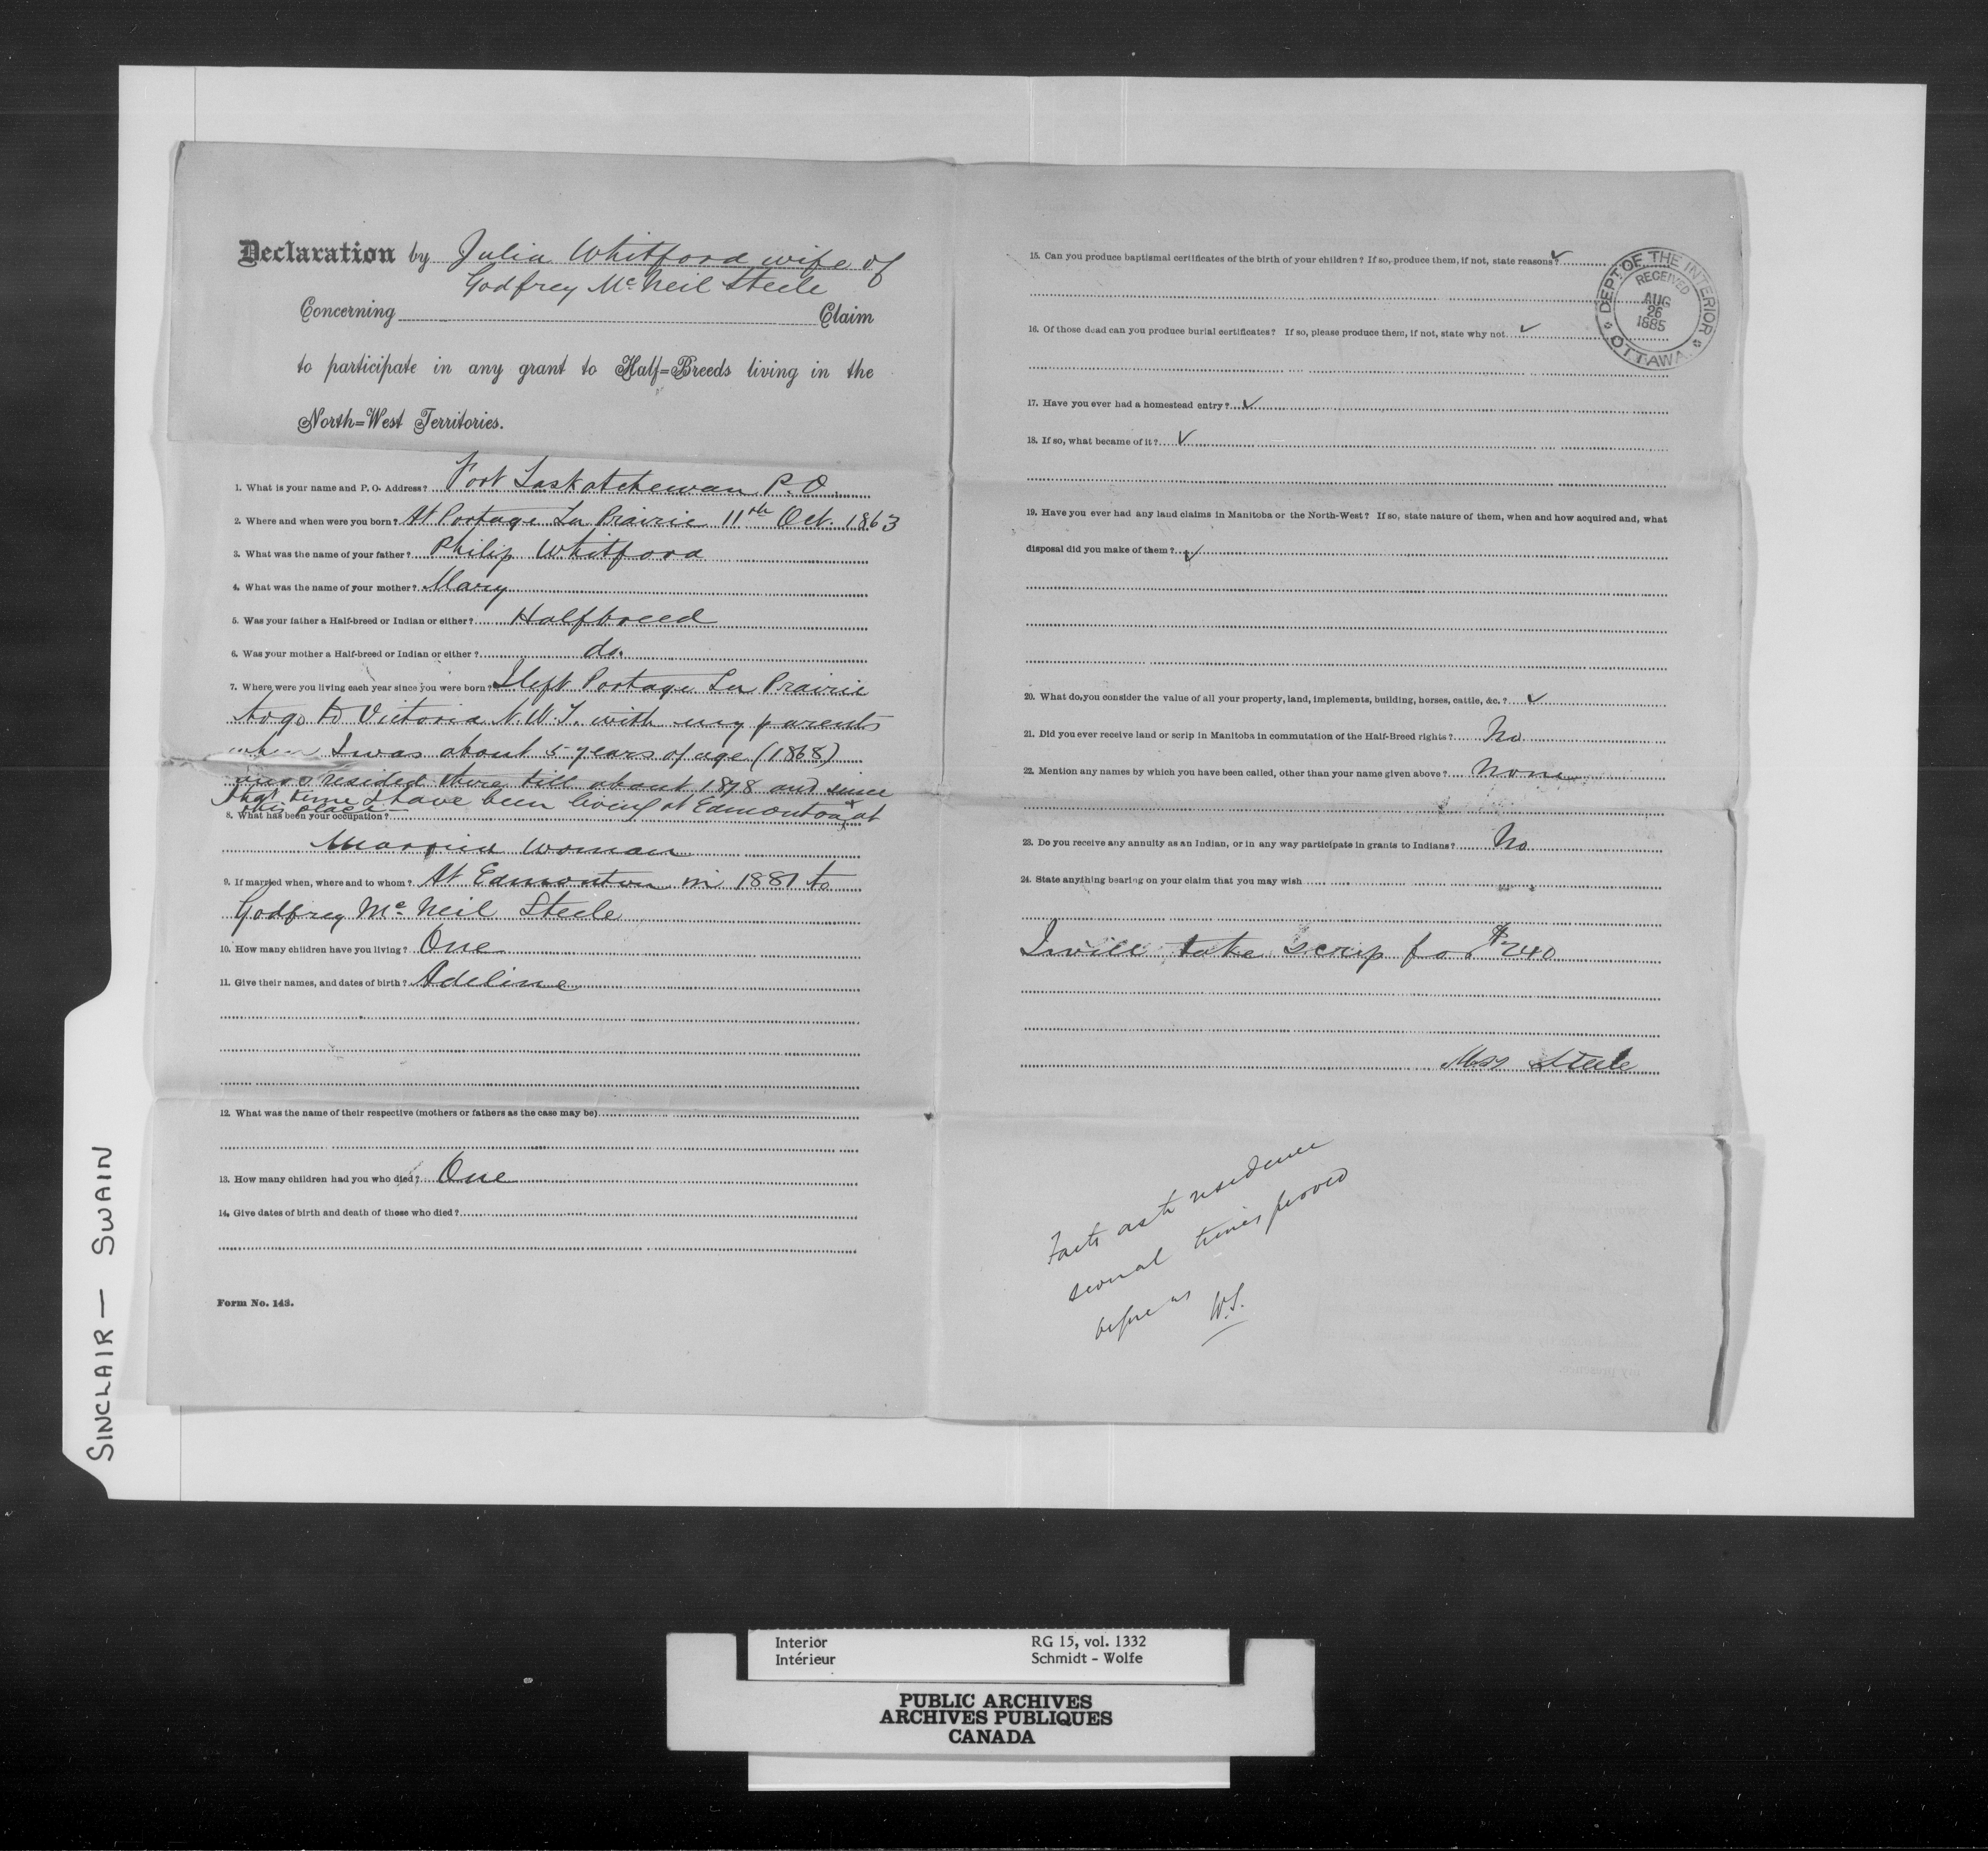 Declaration by Julia Whitford wife of
Godfrey McNeil Steele
Concerning Claim
to participate in any grant to Half=Breeds living in the
North=West Territories.
1. What is your name and P. O. Address? Fort Saskatchewan P.O.
2. Where and when were you born? At Portage La Prairie 11th Oct. 1863
3. What was the name of your father? Philip Whitford
4. What was the name of your mother? Mary
5. Was your father a Half-breed or Indian or either? Halfbreed
6. Was your mother a Half-breed or Indian or either? do.
7. Where were you living each year since you were born? I left Portage La Prairie
to go to Victoria N.W.T. with my parents
when I was about 5 years of age (1868)
and resided there till about 1878 and since
that time I have been living at Edmonton & at
this place
8. What has been your occupation?
Married woman
9. If married when, where and to whom? At Edmonton in 1881 to
Godfrey Mc Neil Steele
10. How many children have you living? One
11. Give their names, and dates of birth? Adeline
12. What was the name of their respective (mothers or fathers as the case may be)
13. How many children had you who died? One
14. Give dates of birth and death of those who died?
Form No. 143.
15. Can you produce baptismal certificates of the birth of your children? If so, produce them, if not, state reasons? ✓
16. Of those dead can you produce burial certificates? If so, please produce them, if not, state why not ✓
17. Have you ever had a homestead entry? ✓
18. If so, what became of it? ✓
19. Have you ever had any land claims in Manitoba or the North-West? If so, state nature of them, when and how acquired and, what
disposal did you make of them? ✓
20. What do you consider the value of all your property, land, implements, building, horses, cattle, &c.? ✓
21. Did you ever receive land or scrip in Manitoba in commutation of the Half-Breed rights? No
22. Mention any names by which you have been called, other than your name given above? None
23. Do you receive any annuity as an Indian, or in any way participate in grants to Indians? No
24. State anything bearing on your claim that you may wish
I will take scrip for $240
Mrs Steele
Facts as to residence
several times proved
before us
W.S.
DEPT. OF THE INTERIOR
RECEIVED
AUG
26
1885
OTTAWA
SINCLAIR — SWAIN
Interior RG 15, vol. 1332
Intérieur Schmidt - Wolfe
PUBLIC ARCHIVES
ARCHIVES PUBLIQUES
CANADA